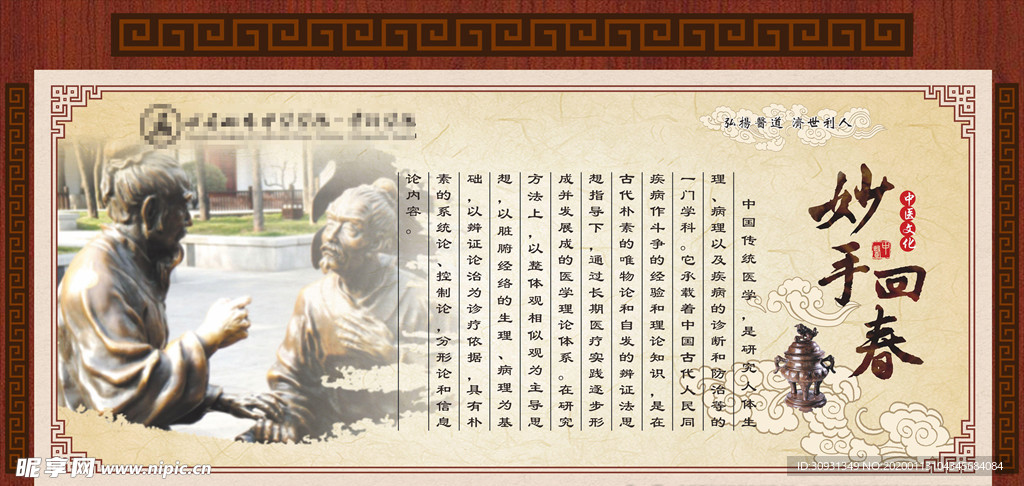 弘揚醫道 濟世利人
妙手回春
中医文化
中国传统医学，是研究人体生
理、病理以及疾病的诊断和防治等的
一门学科。它承载着中国古代人民同
疾病作斗争的经验和理论知识，是在
古代朴素的唯物论和自发的辨证法思
想指导下，通过长期医疗实践逐步形
成并发展成的医学理论体系。在研究
方法上，以整体观相似观为主导思
想，以脏腑经络的生理、病理为基
础，以辨证论治为诊疗依据，具有朴
素的系统论、控制论，分形论和信息
论内容。
昵享网 www.nipic.cn
ID:30931349 NO:20200113104345684084